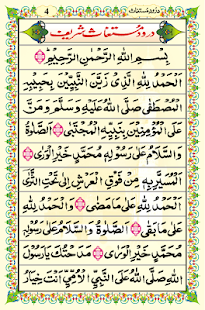 4 درود مستغاث
درود مستغاث شریف
بِسْمِ اللهِ الرَّحْمٰنِ الرَّحِيْمِ
اَلْحَمْدُ لِلّٰهِ الَّذِىْ زَيَّنَ النَّبِيِّيْنَ بِحَبِيْبِهِ
الْمُصْطَفٰى صَلَّى اللهُ عَلَيْهِ وَسَلَّمَ وَمَنَّ
عَلَى الْمُؤْمِنِيْنَ بِنَبِيِّهِ الْمُجْتَبٰى اَلصَّلٰوةُ
وَالسَّلَامُ عَلٰى رَسُوْلِهٖ مُحَمَّدٍ خَيْرِ الْوَرٰى
اَلْمَسِيْرِ بِهٖ مِنْ فَوْقِ الْعَرْشِ اِلٰى تَحْتِ الثَّرٰى
اَلْحَمْدُ لِلّٰهِ عَلٰى مَا مَضٰى وَالْحَمْدُ لِلّٰهِ
عَلٰى مَا بَقٰى اَلصَّلٰوةُ وَالسَّلَامُ عَلٰى رَسُوْلِهٖ
مُحَمَّدٍ خَيْرِ الْوَرٰى مَدَحْتُكَ يَا رَسُوْلَ
اللهِ صَلَّى اللهُ عَلَى النَّبِىِّ الْاُمِّىِّ اَنْتَ خِيَارُ